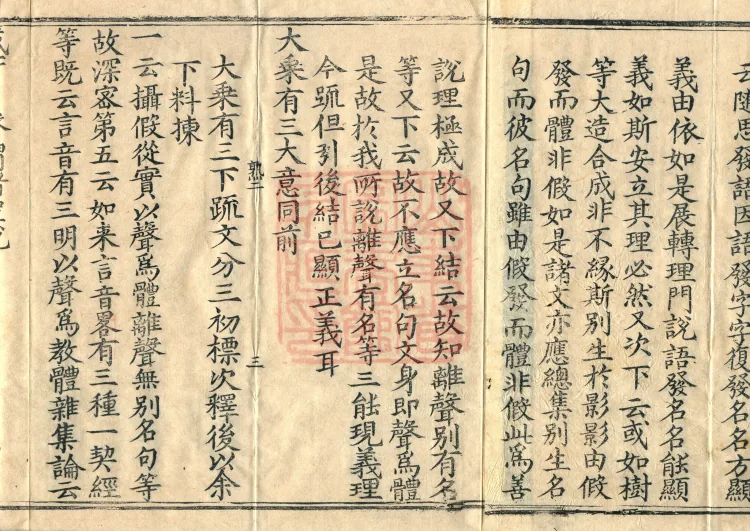 云隨思發語因語發字字復發名名方顯
義由依如是展轉理門說語發名名能顯
義如斯安立其理必然又次下云或如樹
等大造合成非不緣斯別生於影影由假
發而體非假如是諸文亦應總集別生名
句而彼名句雖由假發而體非假此為善
說理極成故又下結云故知離聲別有名
等又下云故不應立名句文身即聲為體
是故於我所說離聲有名等三能現義理
今䟽但引後結已顯正義耳
大乘有三大意同前
熟二
三
大乘有三下䟽文分三初標次釋後以余
下料揀
一云攝假從實以聲為體離聲無別名句等
故深密第五云如来言音畧有三種一契經
等既云言音有三明以聲為教體雜集論云